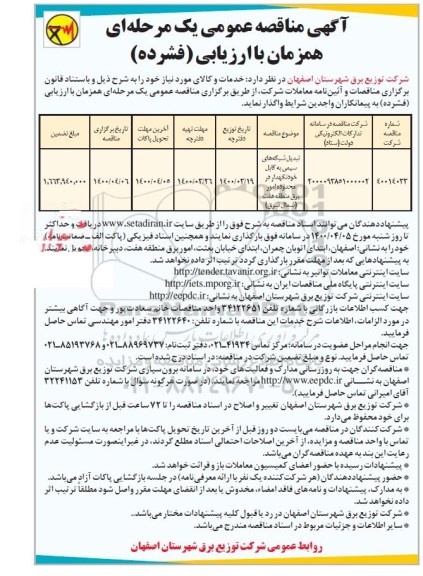 آگهی مناقصه عمومی یک مرحله‌ای
همزمان با ارزیابی (فشرده)
شرکت توزیع برق شهرستان اصفهان در نظر دارد: خدمات و کالای مورد نیاز خود را به شرح ذیل و باستناد قانون
برگزاری مناقصات و آئین‌نامه معاملات شرکت، از طریق برگزاری مناقصه عمومی یک مرحله‌ای همزمان با ارزیابی
(فشرده) به پیمانکاران واجدین شرایط واگذار نماید.
شماره مناقصه شرکت
شرکت مناقصه در سامانه تدارکات الکترونیکی دولت (ستاد)
موضوع مناقصه
تاریخ توزیع دفترچه
مهلت تهیه دفترچه
آخرین مهلت تحویل پاکات
تاریخ برگزاری مناقصه
مبلغ تضمین
۴۰۰۱۴۰۳۳
۲۰۰۰۰۹۳۸۵۱۰۰۰۰۰۲
تبدیل شبکه‌های سیمی به کابل خودنگهدار در محدوده امور برق منطقه هفت
۱۴۰۰/۰۳/۱۹
۱۴۰۰/۰۳/۲۶
۱۴۰۰/۰۴/۰۵
۱۴۰۰/۰۴/۰۶
۱,۶۶۳,۹۴۰,۰۰۰
پیشنهاددهندگان می‌توانند اسناد مناقصه به شرح فوق را از طریق سایت www.setadiran.ir دریافت و حداکثر
تا روز شنبه مورخ ۱۴۰۰/۰۴/۰۵ در سامانه فوق بارگذاری نمایند و همچنین اسناد فیزیکی (پاکت الف - ضمانت‌نامه)
خود را به نشانی: اصفهان، ابتدای اتوبان چمران، ابتدای خیابان بعثت، امور برق منطقه هفت، دبیرخانه تحویل نمایند.
به پیشنهادهایی که بعد از مهلت مقرر بارگذاری گردد ترتیب اثر داده نخواهد شد.
سایت اینترنتی معاملات توانیر به نشانی: http://tender.tavanir.org.ir
سایت اینترنتی پایگاه ملی مناقصات ایران به نشانی: http://iets.mporg.ir
سایت اینترنتی شرکت توزیع برق شهرستان اصفهان به نشانی: http://eepdc.ir
جهت کسب اطلاعات بازرگانی با شماره تلفن ۳۴۱۲۲۶۵۱ واحد مناقصات خانم سعادت پور و جهت آگاهی بیشتر
در مورد الزامات، اطلاعات شرح خدمات این مناقصه با شماره تلفن: ۳۴۱۲۲۶۴۰ دفتر امور مهندسی تماس حاصل
فرمایید.
جهت انجام مراحل عضویت در سامانه: مرکز تماس ۴۱۹۳۴-۰۲۱ دفتر ثبت نام: ۸۸۹۶۹۷۳۷-۰۲۱ و ۸۵۱۹۳۷۶۸-۰۲۱
تماس حاصل فرمایید. نوع و مبلغ تضمین شرکت در مناقصه: در اسناد درج شده است.
* مناقصه گران جهت به روزرسانی مدارک و فعالیت های خود، در سامانه برون‌سپاری شرکت توزیع برق شهرستان
اصفهان به نشانی http://www.eepdc.ir مراجعه نمایند، (در صورت هرگونه سؤال با شماره تلفن ۳۲۲۴۱۱۵۳
آقای امیرانی تماس حاصل فرمایید).
* شرکت توزیع برق شهرستان اصفهان تغییر و اصلاح در اسناد مناقصه را تا ۷۲ ساعت قبل از بازگشایی پاکت‌ها
برای خود محفوظ می‌دارد.
* شرکت کنندگان در مناقصه می‌بایست دو روز قبل از آخرین تاریخ تحویل پاکت‌ها با مراجعه به سایت شرکت و یا
تماس با واحد مناقصه و مزایده، از آخرین اصلاحات احتمالی اسناد مطلع گردند، در غیر اینصورت مسئولیت عدم
رعایت این بند به عهده مناقصه گران می‌باشد.
* پیشنهادات رسیده با حضور اعضای کمیسیون معاملات باز و قرائت خواهد شد.
* حضور پیشنهاددهندگان (هر شرکت کننده یک نفر با ارائه معرفی نامه) در جلسه بازگشایی پاکات آزاد می‌باشد.
* به مدارک، پیشنهادات و نامه های فاقد امضاء، مخدوش یا بعد از انقضای مهلت مقرر واصل شود مطلقاً ترتیب اثر
داده نخواهد شد.
* شرکت توزیع برق شهرستان اصفهان در رد یا قبول کلیه پیشنهادات مختار می‌باشد.
* سایر اطلاعات و جزئیات مربوط در اسناد مناقصه مندرج می‌باشد.
روابط عمومی شرکت توزیع برق شهرستان اصفهان